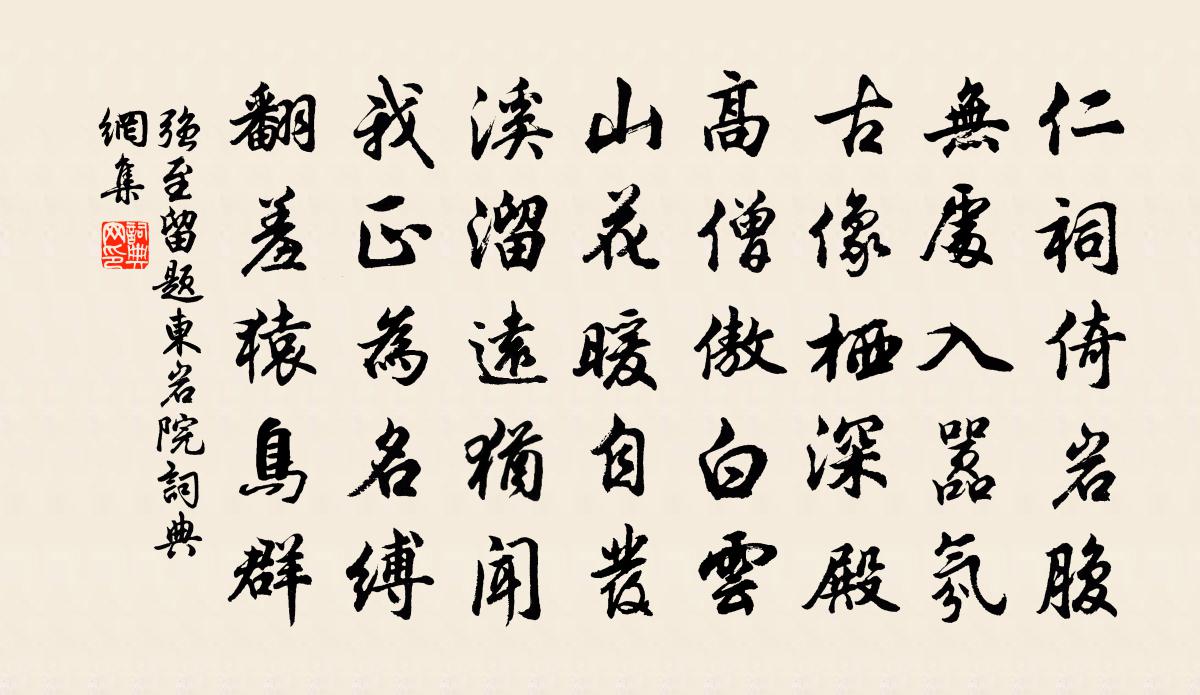 仁祠倚岩腹
無處入囂氛
古像栖深殿
高僧傲白雲
山花暖自發
溪溜遠猶聞
我正為名縛
翻羞猿鳥群
强至留題東岩院詞典
網集
詞典
网印